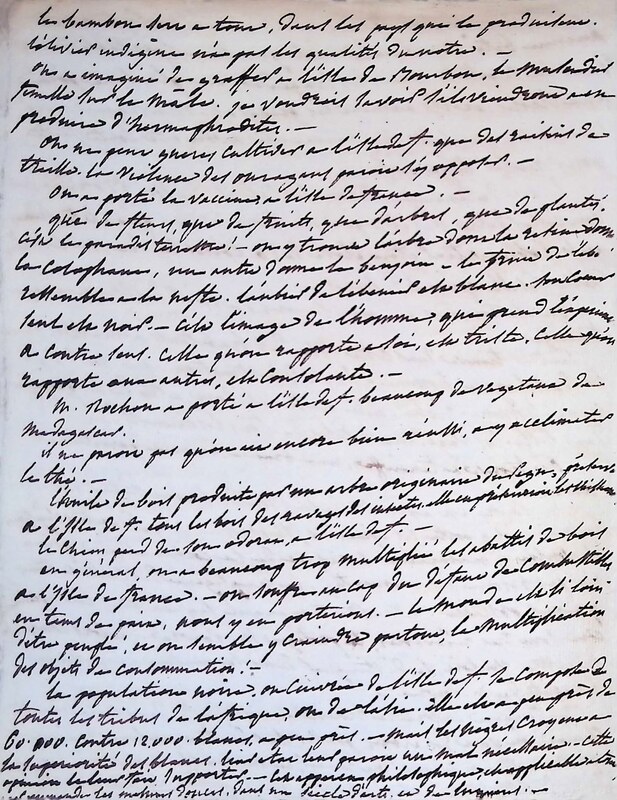 le bambou sert a tout, dans les pays qui le produisent.
l'olivier indigène n'a pas les qualités du notre. —
On a imaginé de greffer a l'isle de Bourbon, le muscadier
femelle sur le mâle. je voudrois savoir s'ils viendront a en
produire d'hermaphrodites. —
On ne peut gueres cultiver a l'isle de f. que des raisins de
treille. la violence des ouragans paroit s'y opposer. —
On a porté la vaccine a l'isle de france. —
que de fleurs, que de fruits, que d'arbres, que de plantes.
c'est le paradis terrestre! — on y trouve l'arbre dont la resine donne
la colophane, un autre donne le benjoin — le fruit de l'ebe
ressemble a la nefle. l'aubier de l'ébenier est blanc. son Coeur
seul est noir. — c'est l'image de l'homme, qui prend
a contre sens. Celle qu'on rapporte a soi, est triste, Celle qu'on
rapporte aux autres, est Consolante. —
M. Rochon a porté a l'isle de f. beaucoup de vegetaux de
Madagascar.
il ne paroit pas qu'on aie encore bien réussi, a y acclimater
le thé. —
L'huile de bois produite par un arbre originaire du Pegu,
a l'Isle de f. tous les bois des ravages des insectes.
le Chien perd de son odorat, a l'isle de f. —
en général, on a beaucoup trop multiplié les abattis de bois
a l'Isle de france. — on souffre au Cap du defaut de Combustibles
en tems de paix, nous y en porterions. — le monde est si loin
d'être peuplé, et on semble y craindre partout, la Multiplication
des objets de consommation! —
la population noire, ou Cuivrée de l'isle de f. se Compose de
toutes les tribus de l'afrique, ou de l'asie. elle est a peu près de
60.000. contre 12,000 blancs, a peu près. — mais les nègres croyent a
la superiorité des blancs. leur etat leur paroit un mal necessaire. — cette
opinion le leur fait supporter. — cet apperçu philosophique est applicable
les maitres doux, dans un siècle d'arts et de lumieres. —